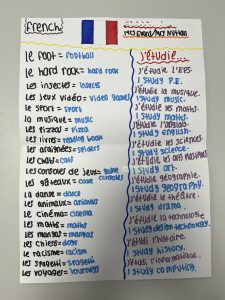 French
le foot = football
le hard rock = hard rock
les insectes = insects
les jeux vidéo = video games
le sport = sport
la musique = music
les pizzas = pizza
les livres = reading book
les araignées = spiders
les chats = cats
les consoles de jeux = game consoles
les gâteaux = cake
la danse = dance
les animaux = animals
le cinéma = cinema
les maths = maths
les mangas = mangas
les chiens = dogs
le racisme = racism
les spagetti = spagetti
les voyages = journeys
J'étudie...
J'étudie l'EPS.
I study P.E.
J'étudie la musique.
I study music.
J'étudie les maths.
I study maths.
J'étudie l'anglais.
I study English.
J'étudie les sciences.
I study science.
J'étudie les arts plastiques
I study art.
J'étudie géographie.
I study geography.
J'étudie le théâtre.
I study drama.
J'étudie la technologie
I study design technology.
J'étudi l'histoire.
I study history.
J'étudi l'informatique.
I study computing.